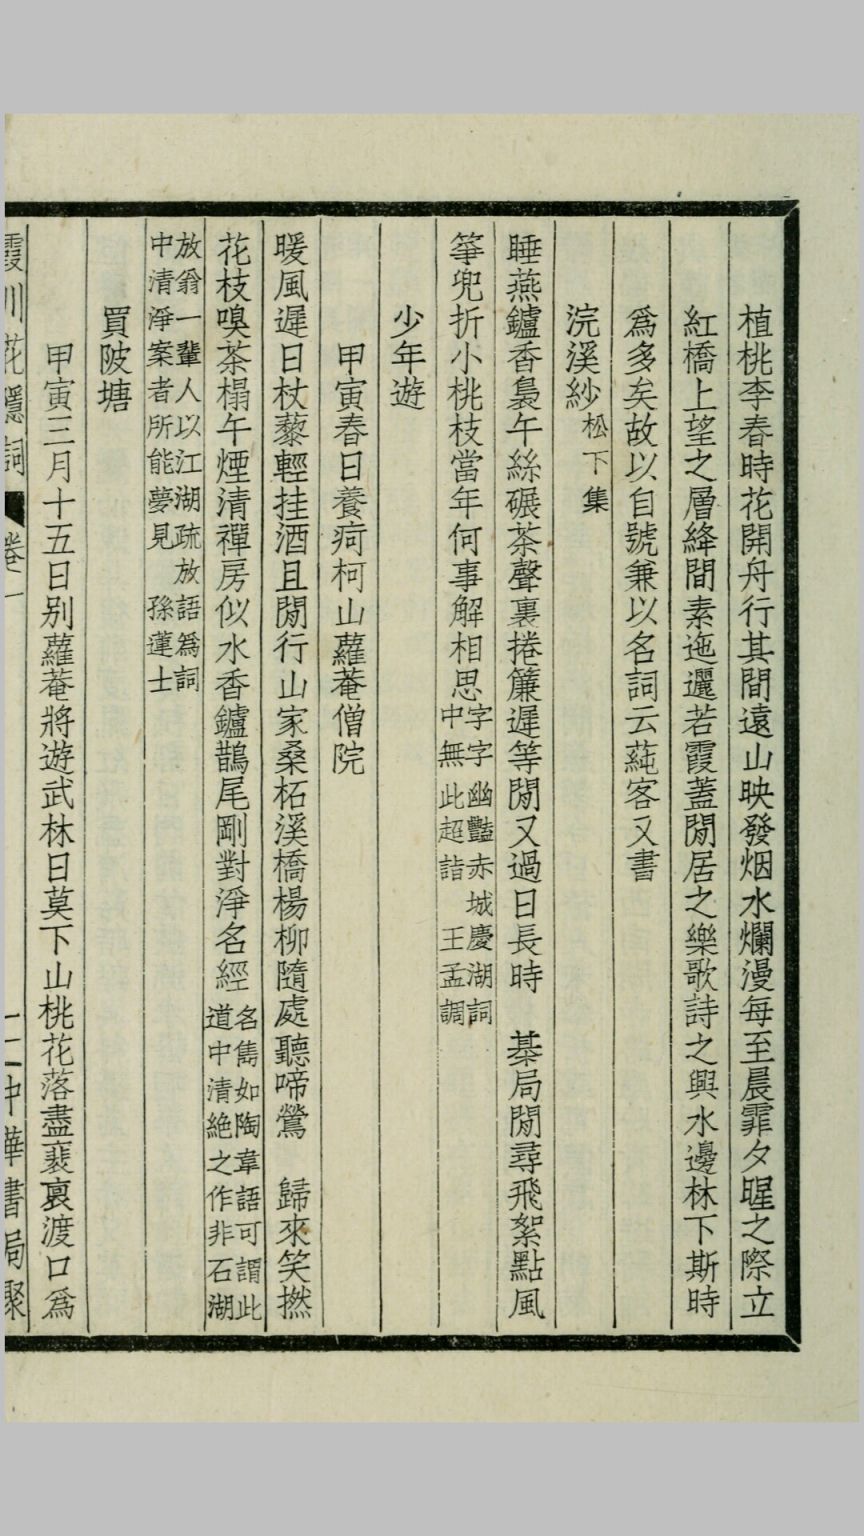 植桃李春時花開舟行其間遠山映發烟水爛漫每至晨霏夕暒之際立
紅橋上望之層絳間素迤邐若霞蓋閒居之樂歌詩之興水邊林下斯時
爲多矣故以自號兼以名詞云蒓客又書
浣溪紗松下集
睡燕鑪香裊午絲碾茶聲裏捲簾遲等閒又過日長時　棊局閒尋飛絮點風
箏兜折小桃枝當年何事解相思字字幽豔赤城慶湖詞
中無此超詣　王孟調
少年遊
甲寅春日養疴柯山蘿菴僧院
暖風遲日杖藜輕挂酒且閒行山家桑柘溪橋楊柳隨處聽啼鶯　歸來笑撚
花枝嗅茶榻午煙清禪房似水香鑪鵲尾剛對淨名經名雋如陶韋語可謂此
道中清絶之作非石湖
放翁一輩人以江湖疏放語爲詞
中清淨案者所能夢見　孫蓮士
買陂塘
甲寅三月十五日別蘿菴將遊武林日莫下山桃花落盡裴裒渡口爲
霞川花隱詞　卷一　二中華書局聚